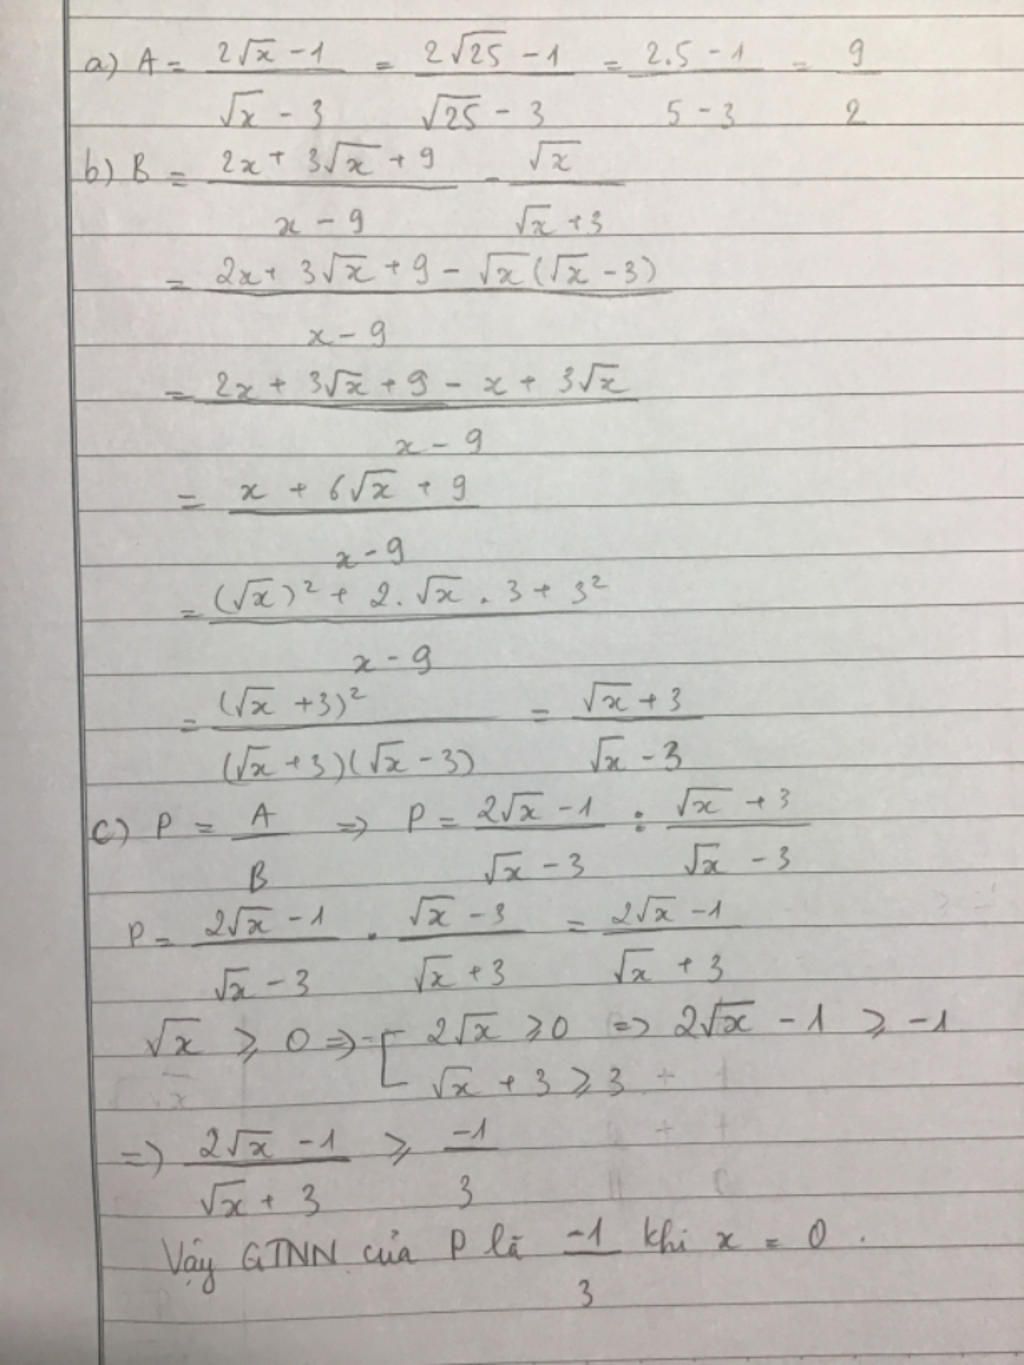 a) A = (2√x - 1)/(√x - 3) = (2√25 - 1)/(√25 - 3) = (2.5 - 1)/(5 - 3) = 9/2
b) B = (2x + 3√x + 9)/(x - 9) - √x/(√x + 3)
= (2x + 3√x + 9 - √x(√x - 3))/(x - 9)
= (2x + 3√x + 9 - x + 3√x)/(x - 9)
= (x + 6√x + 9)/(x - 9)
= ((√x)² + 2.√x . 3 + 3²)/(x - 9)
= (√x + 3)²/((√x + 3)(√x - 3)) = (√x + 3)/(√x - 3)
c) P = A/B => P = (2√x - 1)/(√x - 3) : (√x + 3)/(√x - 3)
P = (2√x - 1)/(√x - 3) . (√x - 3)/(√x + 3) = (2√x - 1)/(√x + 3)
√x ⩾ 0 => [ 2√x ⩾ 0 => 2√x - 1 ⩾ -1
√x + 3 ⩾ 3
=> (2√x - 1)/(√x + 3) ⩾ -1/3
Vậy GTNN của P là -1/3 khi x = 0 .